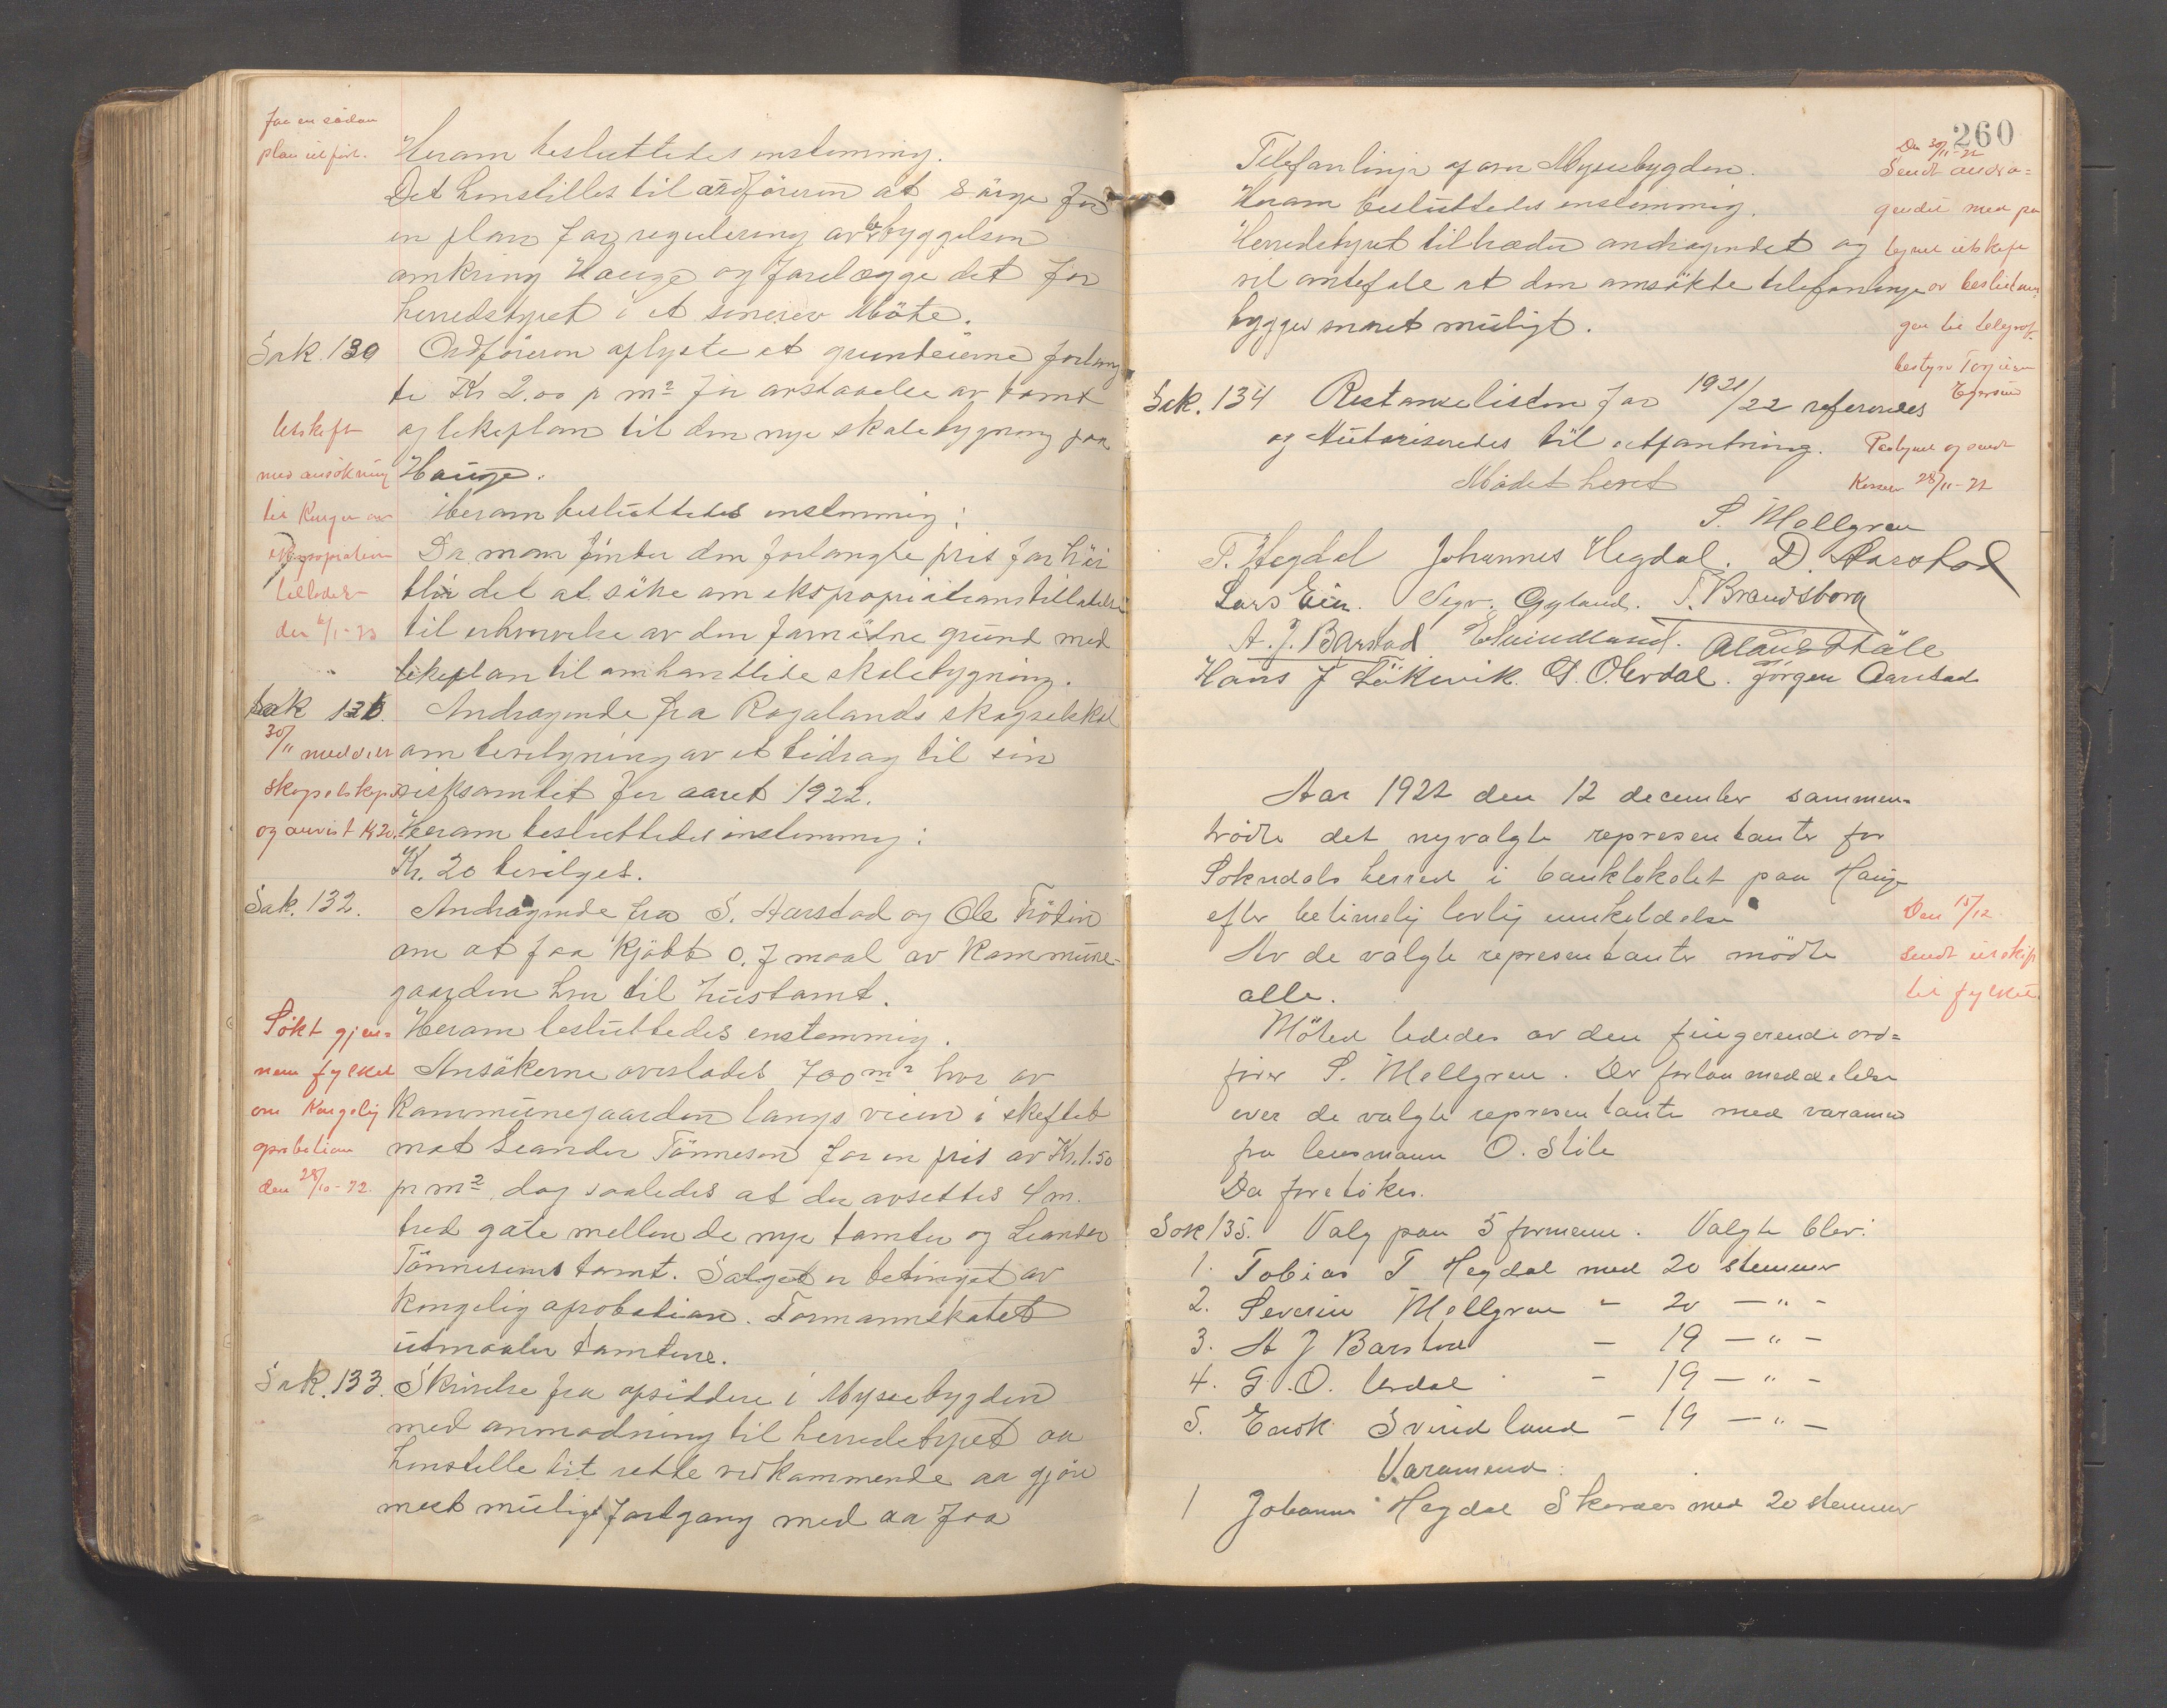 Faa en sådan
plan utført.
Heram besluttedes enstemmig.
Det henstilles til ordföreren at sörge for
en plan for regulering av bebyggelsen
omkring Hauge og forelægge det for
herredstyret i et senere Möte.
Sak. 130 Ordföreren oplyste at grundeierne forlang
te Kr 2.00 p m² for avstaaelse av tomt
og lekeplan til den nye skolebygning paa
Hauge.
Utskrift
med ansökning
til Kongen om
ekspropriation
tillades
den 6/1-23
Heram besluttedes enstemmig:
Da man finder den forlangte pris for höi
blir det at söke om ekspropriationstillatelse
til erhvervelse av den fornödne grund med
lekeplan til omhandlede skolebygning.
Sak 131. Andragende fra Rogalands skogselskal
om bevilgning av et bidrag til sin
virksomhet for aaret 1922.
30/11 meddelt
skogselskapet
og anvist Kr 20.
Heram besluttedes enstemmig:
Kr. 20 bevilges.
Sak. 132. Andragende fra S. Aarstad og Ole Frödin
om at faa kjöbt 0.7 maal av Kommune-
gaarden hver til hustomt.
Heram besluttedes enstemmig.
Søkt gjen=
nem fylket
om Kongelig
aprobation
den 28/10-22.
Ansökerne overlades 700 m² hver av
Kommunegaarden langs veien i skeftet
mot Leander Tönnesen for en pris av Kr. 1.50
pr m², dog saaledes at der avsettes 4 m.
bred gate mellem de nye tomter og Leander
Tönnesens tomt. Salget er betinget av
Kongelig aprobation. Formannskabet
utmaaler tomtene.
Sak. 133. Skrivelse fra opsiddere i Myssebygden
med anmodning til herredstyret aa
henstille til rette vedkommende aa gjöre
mest muligt fortgang med aa faa
260
Telefonlinje op om Myssebygden.
Heram besluttedes enstemmig.
Herredstyret tiltræder andragendet og
vil anbefale at den ansökte telefonlinje
bygges snarest muligt.
Den 30/11-22
Sendt andra=
gendet med pa
tegnet utskrift
av beslutnin
gen til telegraf
bestyrer Torjusen
Egersund
Sak. 134 Restanselisten for 1921/22 refereredes
og Autoriseredes til utpantning.
Paategnet og sendt
Kassere 28/11-22
Mödet hevet
S. Mellgren
T. Hegdal Johannes Hegdal. D. Aarstad
Lars Eia. Sigv. Gyland. T. Brandsberg
A. J. Barstad E Svindland. Claus Ståle
Hans J Lökevik. G. O. Urdal. Jørgen Aarstad
Aar 1922 den 12 december sammen-
trödte det nyvalgte representanter for
Sokndals herred i banklokalet paa Hauge
efter betimelig lovlig innkaldelse
Av de valgte representanter mødte
alle.
Den 15/12
sendt utskrift
til fylket.
Mötet lededes av den fungerende ord=
fører S. Mellgren. Der forlaa meddelelse
over de valgte representanter med varamen
fra lensmann O. Ståle
Da foretökes.
Sak 135. Valg paa 5 formenn. Valgte blev:
1. Tobias T Hegdal med 20 stemmer
2. Severin Mellgren - 20 - " -
3. A J Barstad - 19 - " -
4. G. O. Urdal - 19 - " -
5. Enok Svindland - 19 - " -
Varamend:
1 Johannes Hegdal Skaraas med 20 stemmer